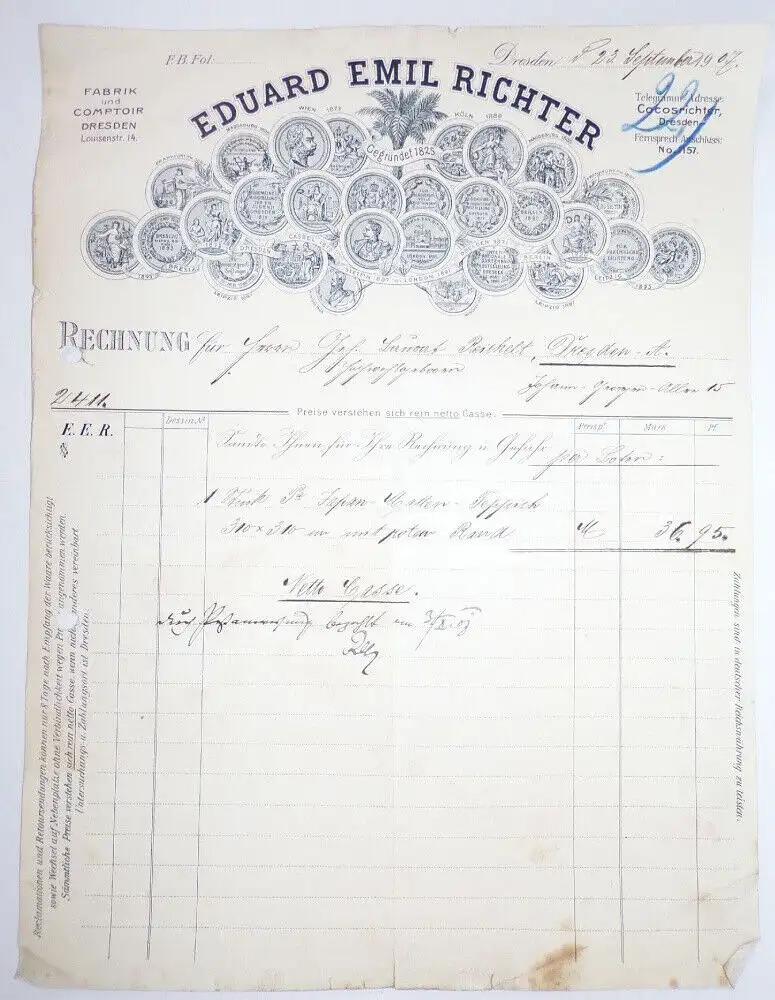 F.B. Fol.
Dresden, d 23. September 1907.
FABRIK
und
COMPTOIR
DRESDEN
Louisenstr. 14.
EDUARD EMIL RICHTER
Telegramm-Adresse:
Cocosrichter,
Dresden.
Fernsprech-Anschluss:
No. 1157.
221
WIEN 1873
KÖLN 1889
Gegründet 1825
DRESDEN
BERLIN
LEIPZIG 1897
LEIPZIG 1897
1895
1895
RECHNUNG für Herrn Geh. Baurat Poschelt, Dresden-A.
Hochwohlgeboren
Johann-Georgen-Allee 15
2411.
Preise verstehen sich rein netto Casse.
E. E. R.
Dessin Nº
Mark
Pf.
Sandte Ihnen für Ihre Rechnung u Gefahr
per Boten:
1 Stück Pa Japan-Matten-Teppich
310 × 310 cm mit roter Rand M 36. 95.
Netto Casse.
durch Postanweisung bezahlt am
Reclamationen und Retoursendungen können nur 8 Tage nach Empfang der Waare berücksichtigt
sowie Wechsel auf Nebenplätze ohne Verbindlichkeit wegen angenommen werden.
Sämmtliche Preise verstehen sich rein netto Casse, wenn nicht anderes vereinbart
Untersuchungs- u. Zahlungsort ist Dresden.
Zahlungen sind in deutscher Reichswährung zu leisten.